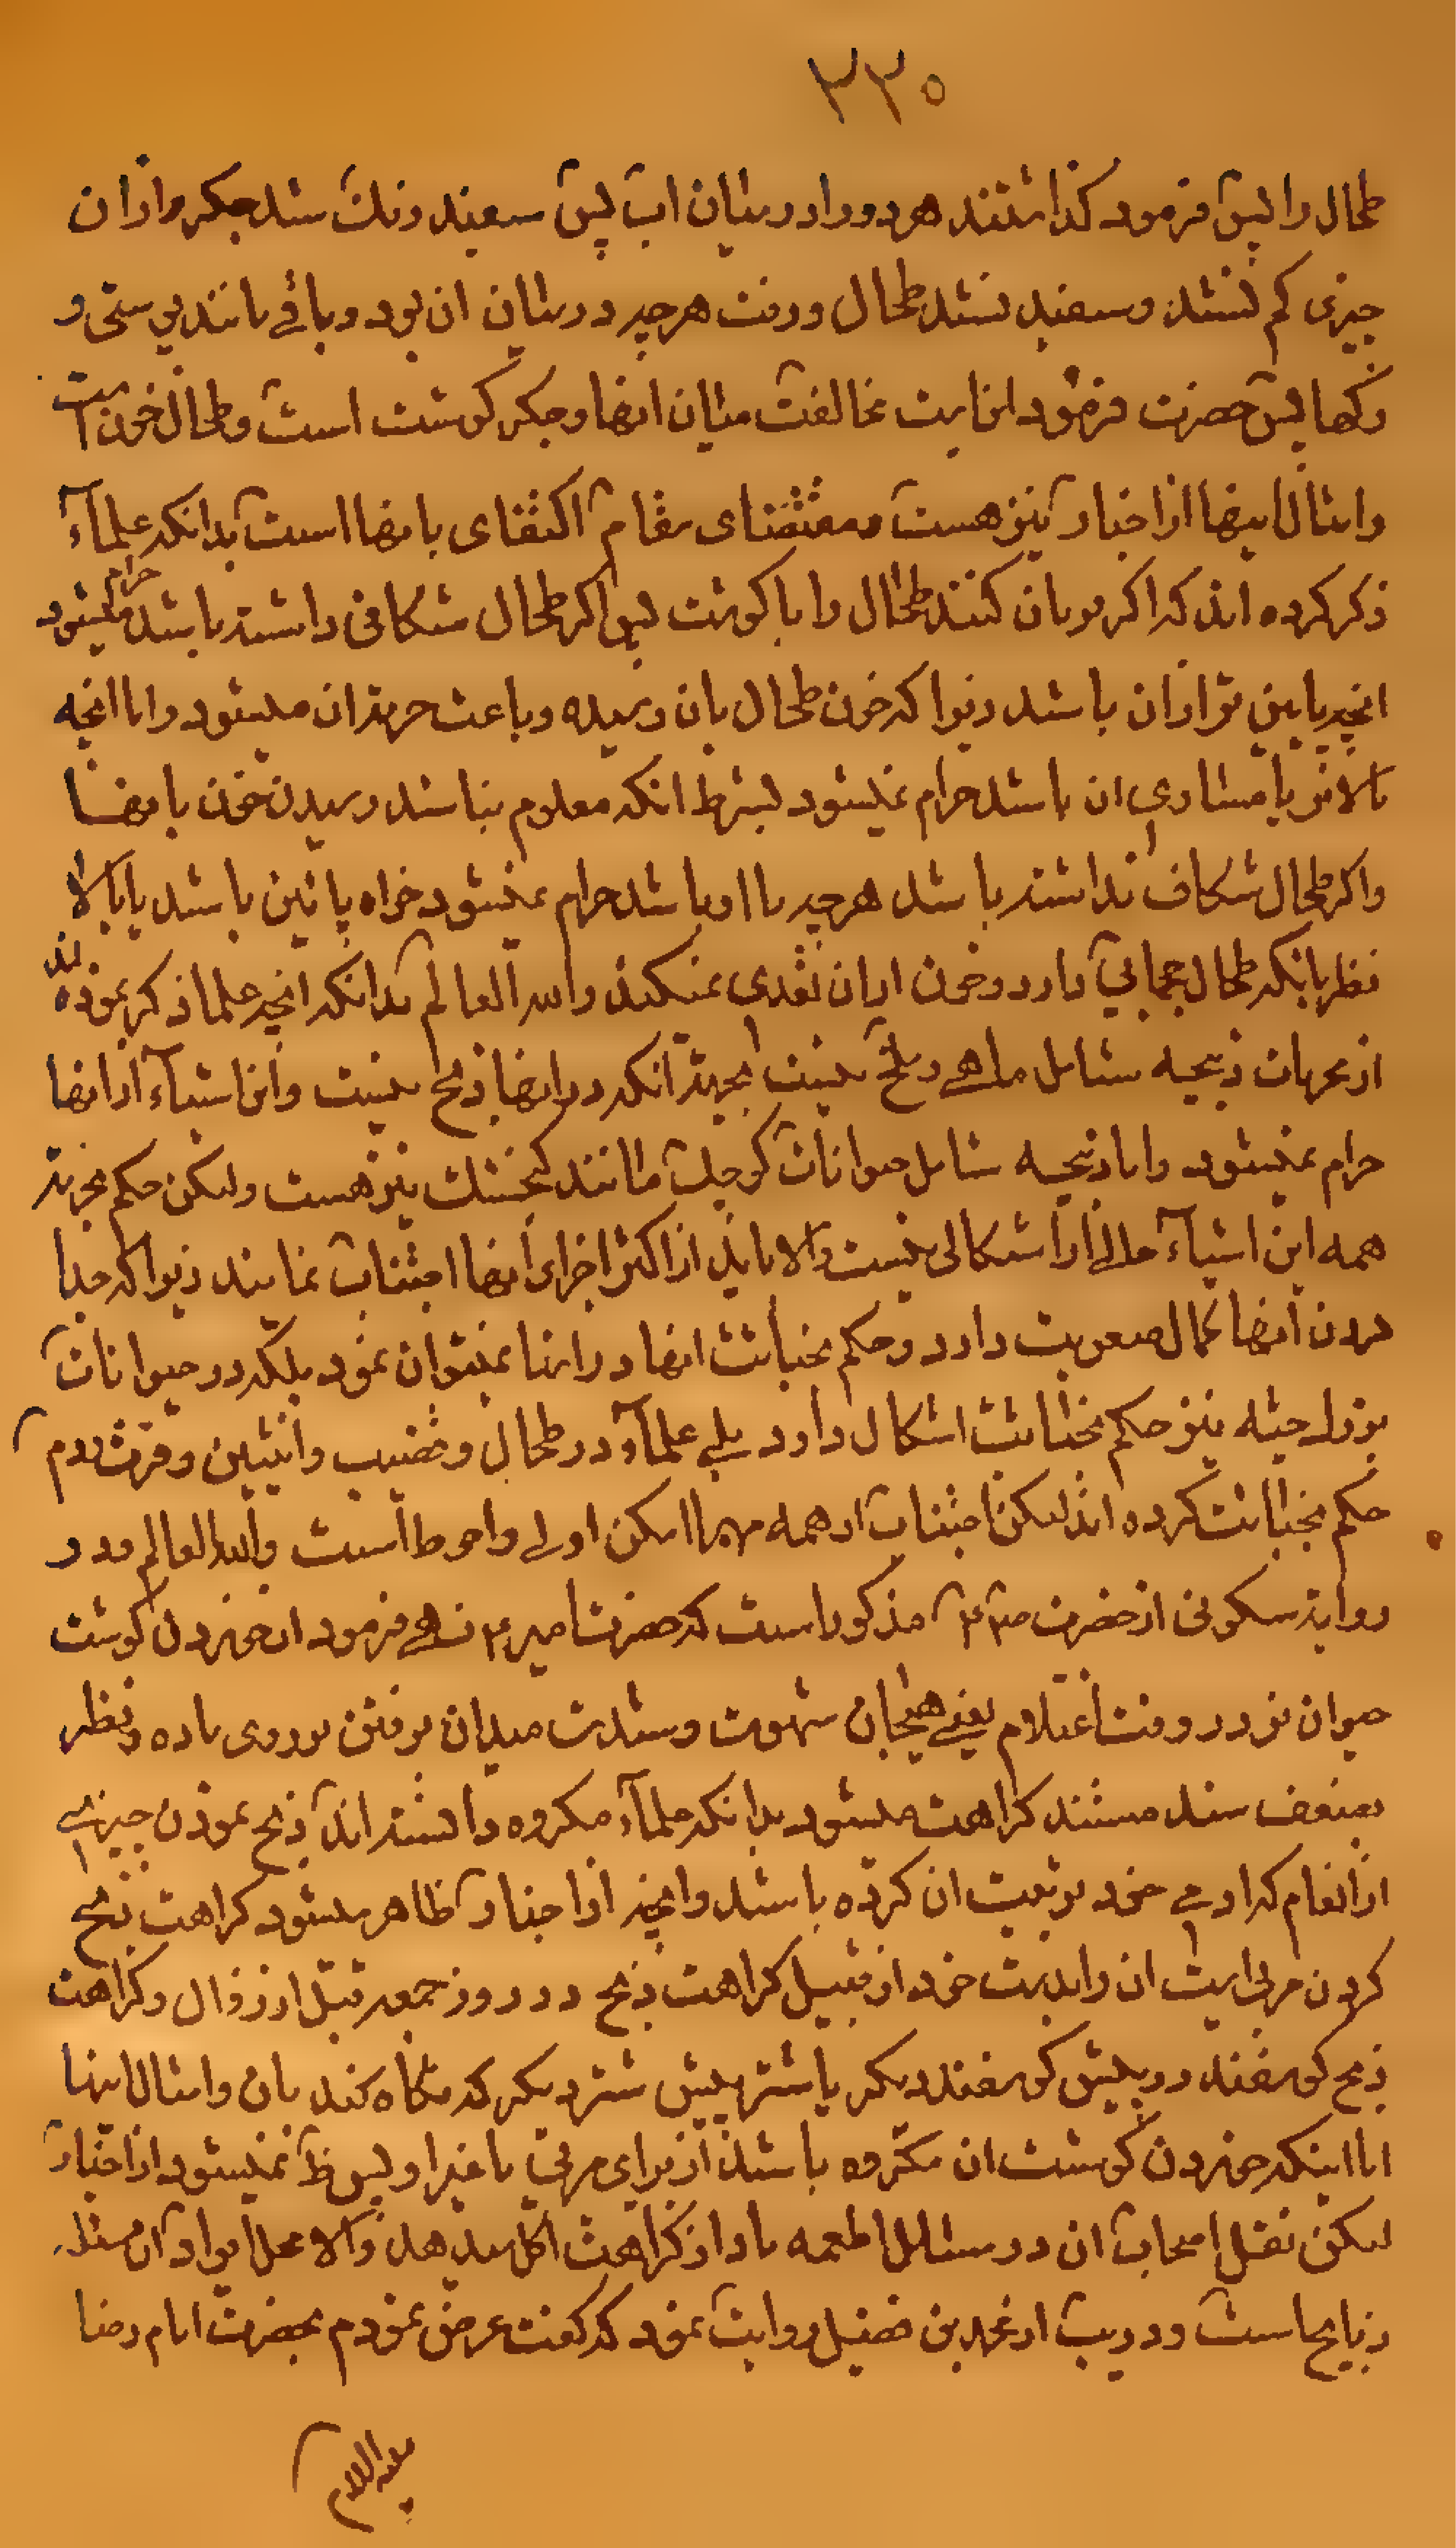 ۳۳۰
طحال را پس فرمود کذاشتند هر دو را در میان اب پس سفید رنک شد جکر و از ان
چیزی کم نشد و سفید نشد طحال و رفت هر چه در میان ان بود و باقی ماند پوستی و
رکها پس حضرت فرمود اینست مخالفت میان انها و جکر کوشت است و طحال خون است
و امثال اینها از اخبار نیز هست و مقتضای مقام اکتفای باینها است بدانکه علمآء
ذکر کرده اند که اکر بریان کنند طحال را با کوشت پس اکر طحال شکافی داشته باشد حرام میشود
انچه پایین تر از ان باشد زیرا که خون طحال بان رسیده و باعث حرمة ان میشود و اما انچه
بالاتر یا مساوی ان باشد حرام نمیشود بشرط انکه معلوم نباشد رسیدن خون بانها
و اکر طحال شکاف نداشته باشد هر چه با او باشد حرام نمیشود خواه پائین باشد یا بالا
نظر بانکه طحال حجابی دارد و خون از ان تعدی نمیکند والله العالم بدانکه انچه علما ذکر نموده اند
از محرمات ذبیحه شامل ماهی و ملخ نیست بجهة انکه در انها ذبح نیست و این اشیآء از انها
حرام نمیشود و اما ذبیحه شامل حیوانات کوچک مانند کنجشک نیز هست ولیکن حکم بحرمة
همه این اشیآء خالی از اشکالی نیست و الا باید از اکثر اجزای انها اجتناب نمایند زیرا که جدا
کردن انها کمال صعوبت دارد و حکم بخباثت انها در اینها نمیتوان نمود بلکه در حیوانات
بزرک جثه نیز حکم بخباثت اشکال دارد بلی علمآء در طحال و قضیب و انثیین و فرث و دم
حکم بخباثت کرده اند لیکن اجتناب از همه مهما امکن اولی و احوط است والله العالم و در
روایة سکونی از حضرت مذکور است که حضرت امیر ع نهی فرمود از خوردن کوشت
حیوان نر در وقت اغتلام یعنی هیجان شهوت و شدت میل ان برفتن بر روی ماده و نظر
بضعف سند مستند کراهت میشود بدانکه علمآء مکروه دانسته اند ذبح نمودن چیزی
از انعام که ادمی خود تربیت ان کرده باشد و انچه از اخبار ظاهر میشود کراهت ذبح
کردن مربی است ان را بدست خود از قبیل کراهت ذبح در روز جمعه قبل از زوال و کراهت
ذبح کوسفند در پیش کوسفند دیکر یا شتر پیش شتر دیکر که نکاه کند بان و امثال اینها
اما اینکه خوردن کوشت ان مکروه باشد از برای مربی یا غیر او پس ظ نمیشود از اخبار
لیکن نقل اصحاب ان در مسائل اطعمه یاد از کراهت اکل میدهد و الا محل ایراد ان مسئله
ذبایح است و در یب از محمد بن فضیل روایت نمود که کفت عرض نمودم بحضرت امام رضا
علیه السلام